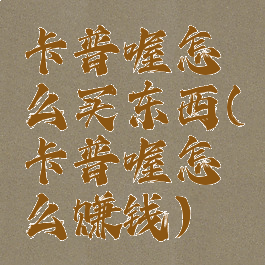 卡普喔怎
么买东西(
卡普喔怎
么赚钱)